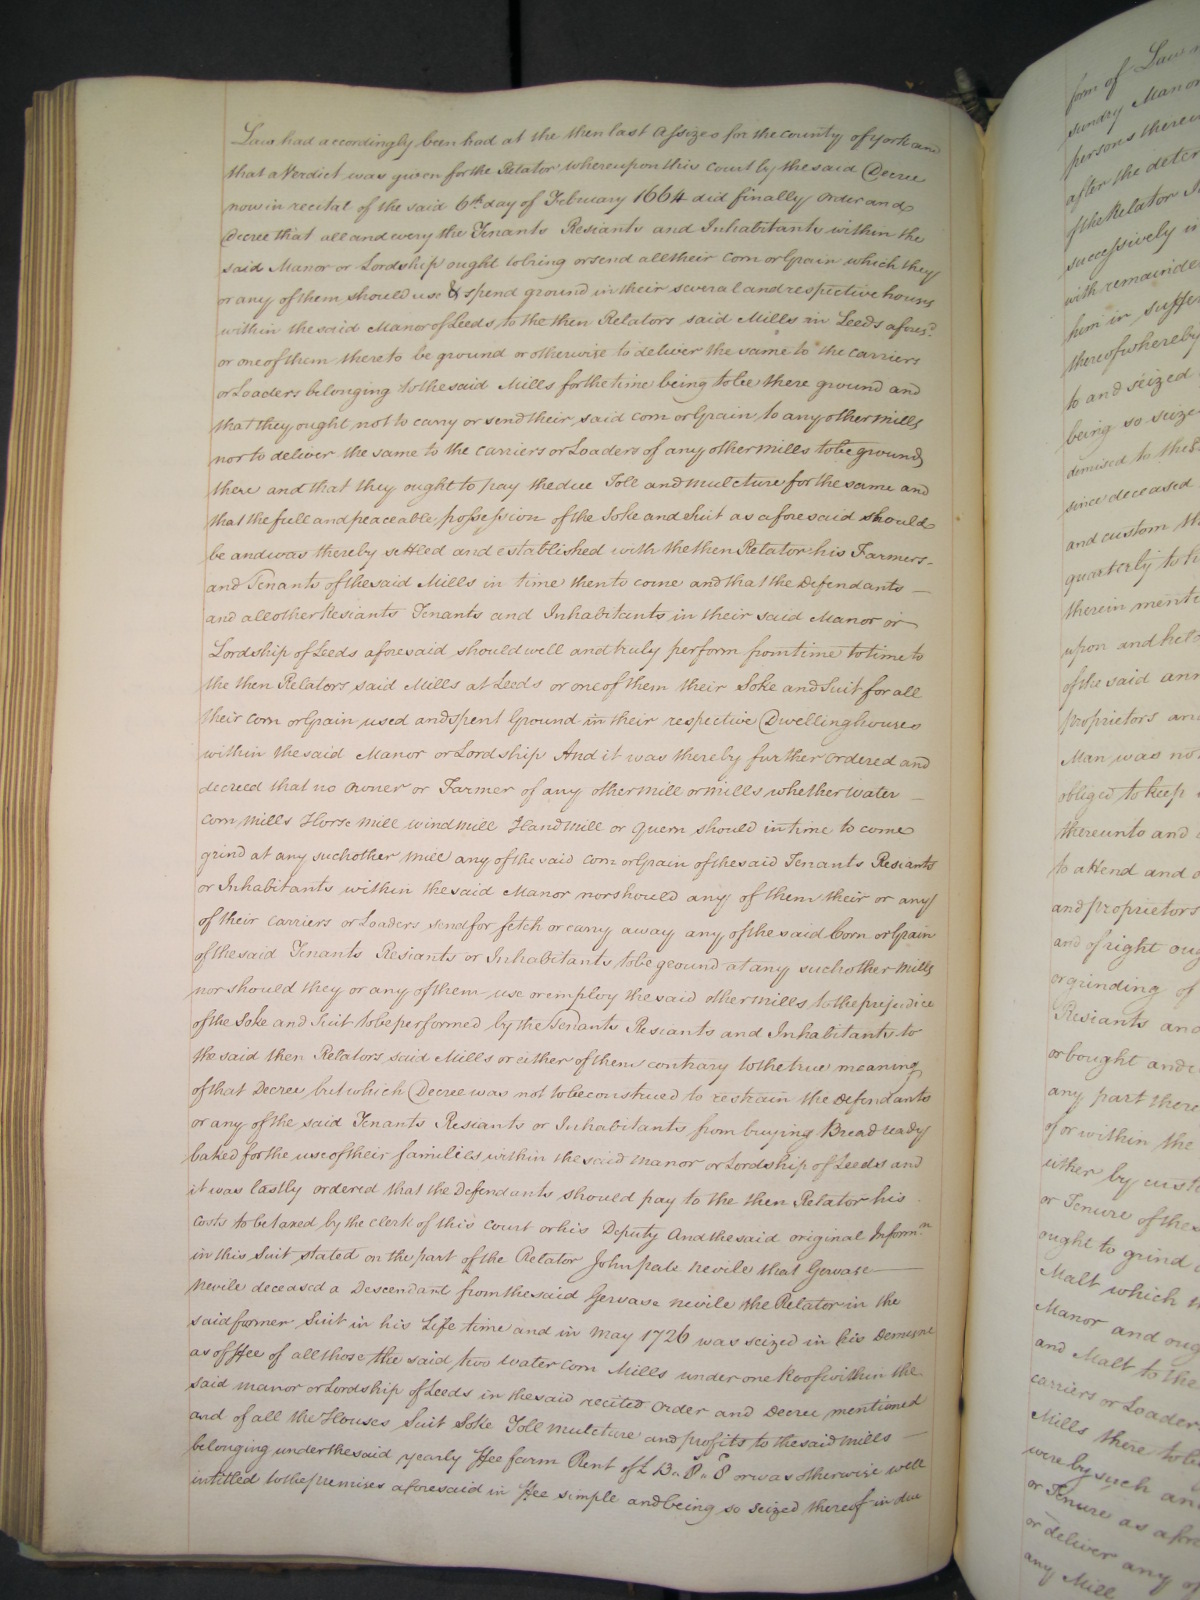 Law had accordingly been had at the then last Assizes for the county of york and
that a Verdict was given for the Relator whereupon this Court by the said Decree
now in recital of the said 6th day of February 1664 did finally order and
Decree that all and every the Tenants Resiants and Inhabitants within the
said Manor or Lordship ought to bring or send all their Corn or Grain which they
or any of them should use & spend ground in their several and respective houses
within the said Manor of Leeds to the then Relators said Mills in Leeds afores.d
or one of them there to be ground or otherwise to deliver the same to the carriers
or Loaders belonging to the said Mills for the time being to be there ground and
that they ought not to carry or send their said corn or Grain to any other mills
nor to deliver the same to the carriers or Loaders of any other mills to be ground
there and that they ought to pay the due Toll and mulcture for the same and
that the full and peaceable possession of the Soke and Suit as aforesaid should
be and was thereby settled and established with the then Relator his Farmers
and Tenants of the said Mills in time then to come and that the Defendants
and all other Resiants Tenants and Inhabitants in their said Manor or
Lordship of Leeds aforesaid should well and truly perform from time to time to
the then Relators said Mills at Leeds or one of them their Soke and Suit for all
their corn or Grain used and spent Ground in their respective Dwellinghouses
within the said Manor or Lordship And it was thereby further ordered and
decreed that no owner or Farmer of any other mill or mills whether water
corn mills Horse mill windmill Handmill or Quern should in time to come
grind at any such other mill any of the said corn or Grain of the said Tenants Resiants
or Inhabitants within the said Manor nor should any of them their or any
of their carriers or Loaders send for fetch or carry away any of the said Corn or Grain
of the said Tenants Resiants or Inhabitants to be ground at any such other mills
nor should they or any of them use or employ the said other mills to the prejudice
of the Soke and Suit to be performed by the Tenants Resiants and Inhabitants to
the said then Relators said Mills or either of them contrary to the true meaning
of that Decree but which Decree was not to be construed to restrain the Defendants
or any of the said Tenants Resiants or Inhabitants from buying Bread ready
baked for the use of their families within the said manor or Lordship of Leeds and
it was lastly ordered that the Defendants should pay to the then Relator his
costs to be taxed by the clerk of this court or his Deputy And the said original Inform.n
in this Suit stated on the part of the Relator John pate Nevile that Gervase
Nevile deceased a Descendant from the said Gervase nevile the Relator in the
said former Suit in his Life time and in May 1726 was seized in his Demesne
as of ffee of all those the said two water corn Mills under one Roof within the
said manor or Lordship of Leeds in the said recited Order and Decree mentioned
and of all the Houses Suit Soke Toll mulcture and profits to the said mills
belonging under the said yearly ffee farm Rent of £ 13 " 8 " 8 or was otherwise well
intitled to the premises aforesaid in ffee simple and being so seized thereof in due
form of Law
sundry Manor
persons therein
after the
of the Relator
successively
with remainder
him in
thereof whereby
to and seized
being so
demised to
since deceased
and custom
quarterly to
therein
upon and
of the said
proprietors
Man was
obliged to keep
thereunto and
to attend and
and proprietors
and of right
or grinding of
Resiants and
or bought and
any part
of or within the
either by
or Tenure of the
ought to grind
Malt which
Manor and
and Malt to the
carriers or
Mills there to
were by such
or Tenure as
or deliver any
any Mill